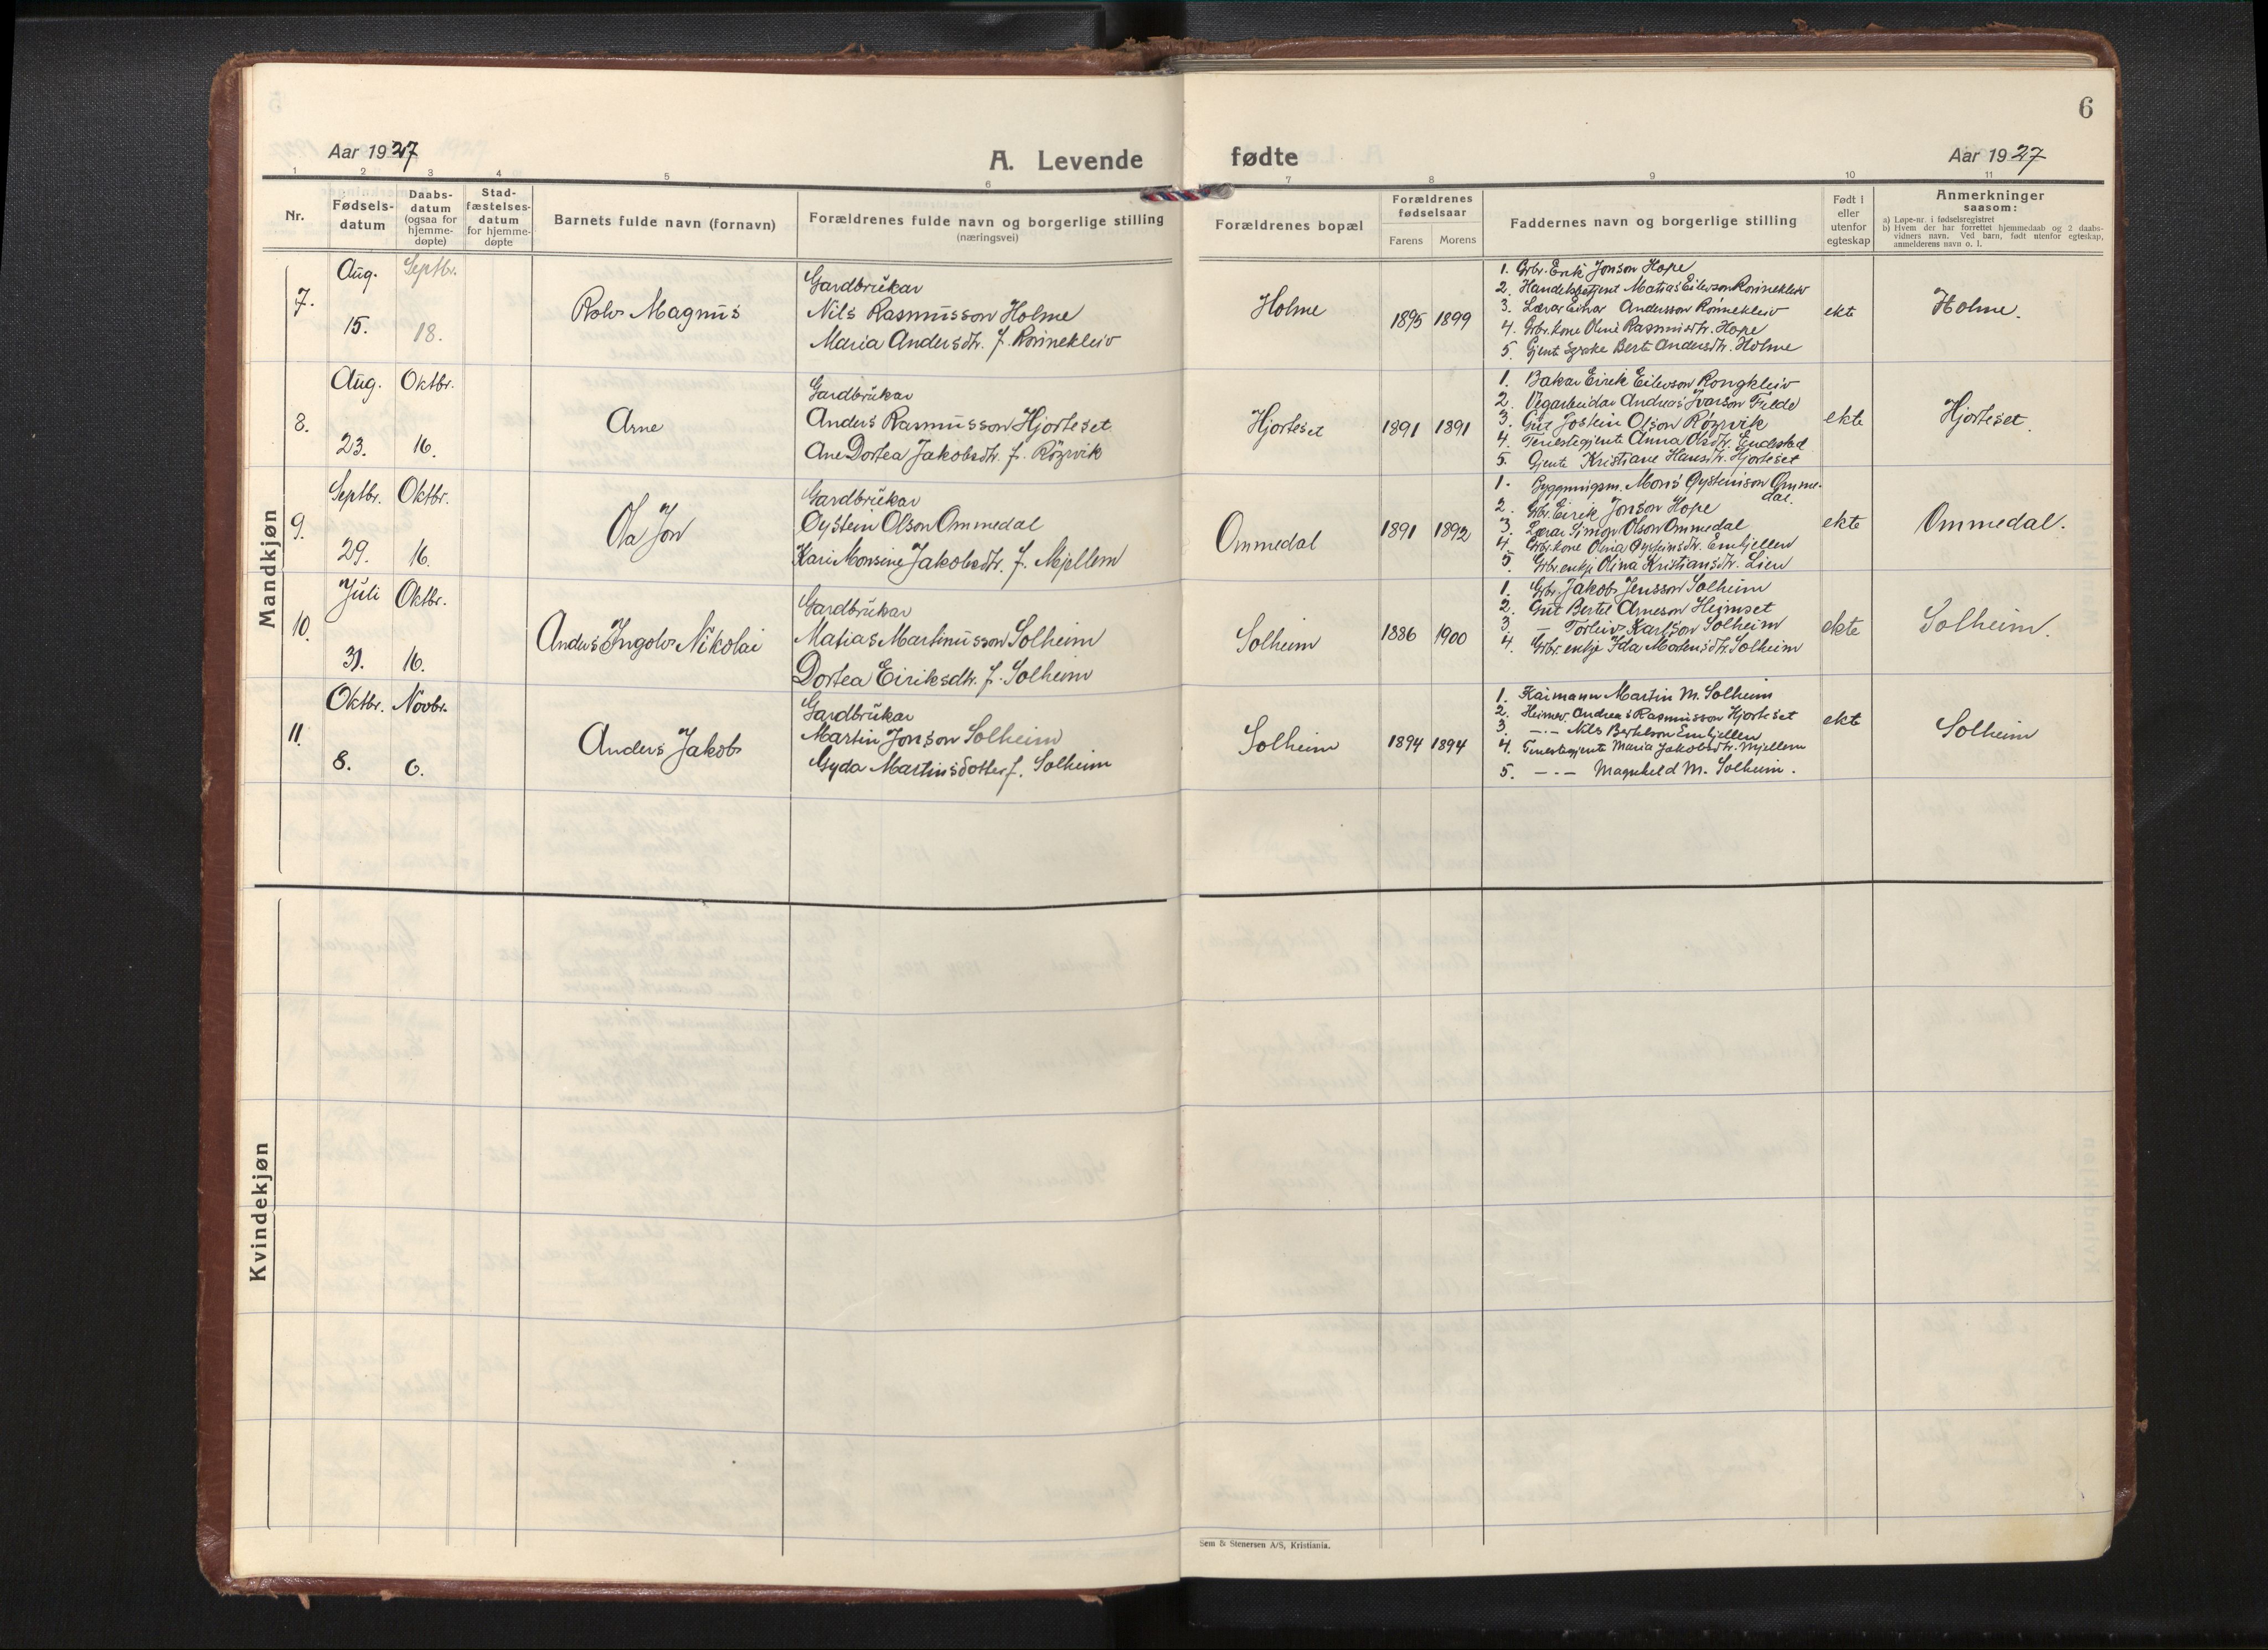 6
Aar 1927
A. Levende
fødte
Aar 1927
1 2 3 4 5 6 7 8 9 10 11
Nr.
Fødsels-
datum
Daabs-
datum
(ogsaa for
hjemme-
døpte)
Stad-
fæstelses-
datum
for hjemme-
døpte
Barnets fulde navn (fornavn)
Forældrenes fulde navn og borgerlige stilling
(næringsvei)
Forældrenes bopæl
Forældrenes
fødselsaar
Farens Morens
Faddernes navn og borgerlige stilling
Født i
eller
utenfor
egteskap
Anmerkninger
saasom:
a) Løpe-nr. i fødselsregistret
b) Hvem der har forrettet hjemmedaab og 2 daabs-
vidners navn. Ved barn, født utenfor egteskap,
anmelderens navn o. l.
Mandkjøn
7.
Aug.
15.
Septbr.
18.
Rolv Magnus
Gardbrukar
Nils Rasmusson Holme
Maria Andersdtr. f. Rinnekleiv
Holme
1895 1899
1. Grbr. Erik Jonson Hope
2. Handelsbetjent Matias Eilevson Rinnekleiv
3. Lærar Einar Andersson Rinnekleiv
4. Grbr. kone Oline Rasmusdtr. Hope
5. Gjente Berte Andersdtr. Holme
ekte
Holme.
8.
Aug.
23.
Oktbr.
16.
Arne
Gardbrukar
Anders Rasmusson Hjorteset
Ane Dortea Jakobsdtr. f. Røyrvik
Hjorteset
1891 1891
1. Bakar Eirik Eilevson Rongkleiv
2. Vegarbeidar Andreas Ivarson Fjelde
3. Gut Jostein Olson Røyrvik
4. Tenestegjente Anna Olsdtr. Endestad
5. Gjente Kristiane Hansdtr. Hjorteset
ekte
Hjorteset.
9.
Septbr.
29.
Oktbr.
16.
Ola Jon
Gardbrukar
Øystein Olson Ommedal
Kari Monsine Jakobsdtr. f. Mjellem
Ommedal
1891 1892
1. Bygningsm. Mons Øysteinson Omme-
dal.
2. Grbr. Eirik Jonson Hope
3. Lærar Simon Olson Ommedal
4. Grbr. kone Olina Øysteinsdtr. Embjellen
5. Grbr. enkje Olina Kristiansdtr. Lien
ekte
Ommedal.
10.
Juli
31.
Oktbr.
16.
Anders Ingolv Nikolai
Gardbrukar
Matias Martinusson Solheim
Dortea Eiriksdtr. f. Solheim
Solheim
1886 1900
1. Grbr. Jakob Jensson Solheim
2. Gut Bertel Arneson Heimset
3. — Torleiv Karlson Solheim
4. Grbr. enkje Ida Mortensdtr. Solheim
ekte
Solheim.
11.
Oktbr.
8.
Novbr.
6.
Anders Jakob
Gardbrukar
Martin Jonson Solheim
Gyda Martinsdotter f. Solheim
Solheim
1894 1894
1. Kaimann Martin M. Solheim
2. Heimev. Andreas Rasmusson Hjorteset
3. —·— Nils Bertelson Embjellen
4. Tenestegjente Maria Jakobsdtr. Mjellem
5. —·— Magnhild M. Solheim.
ekte
Solheim
Kvindekjøn
Sem & Stenersen A/S, Kristiania.